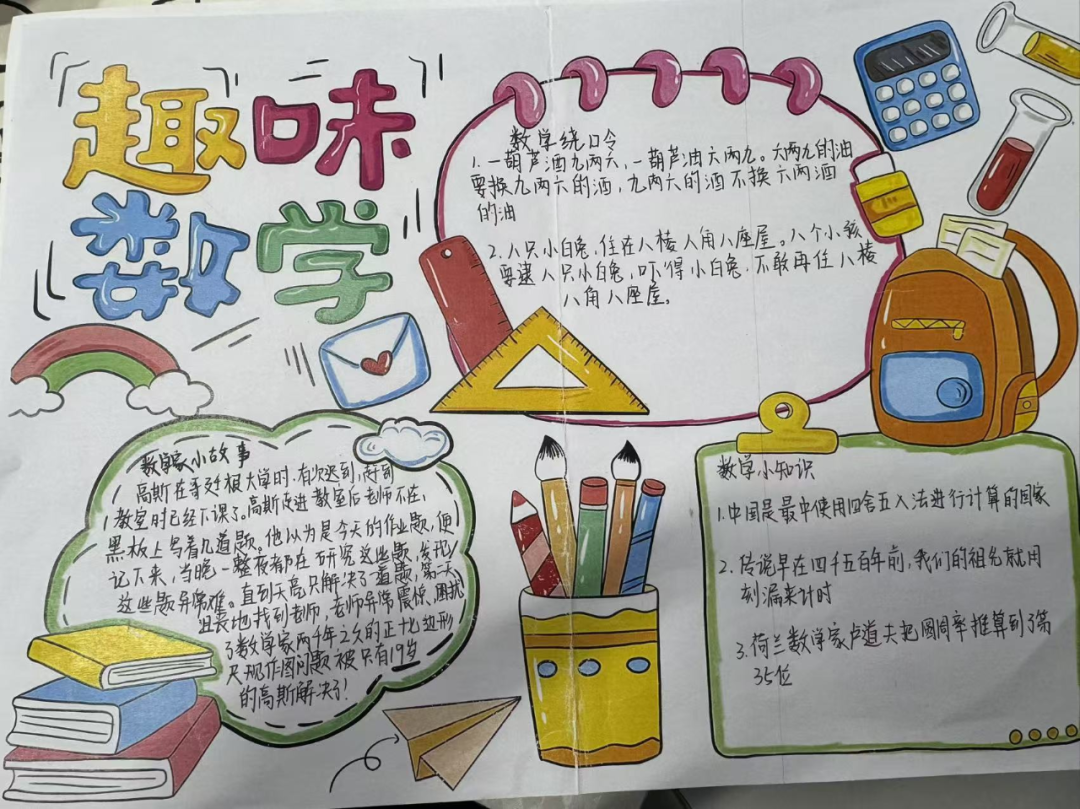 趣味
数学
数学绕口令
1.一葫芦酒九两六,一葫芦油六两九。六两九的油
要换九两六的酒,九两六的酒不换六两酒
的油
2.八只小白兔,住在八棱八角八座屋。八个小孩
要逮八只小白兔,吓得小白兔,不敢再住八棱
八角八座屋。
数学家小故事
高斯在哥廷根大学时,有次迟到,赶到
教室时已经下课了。高斯改进教室后老师不在,
黑板上写着几道题。他以为是今天的作业题,便
记下来,当晚一整夜都在研究这些题,发现
这些题异常难。直到天亮只解决了一道题,第二天
沮丧地找到老师,老师异常震惊,困扰
了数学家两千年之久的正七边形
尺规作图问题被只有19岁
的高斯解决了!
数学小知识
1.中国是最中使用四舍五入法进行计算的国家
2.传说早在四千五百年前,我们的祖先就用
刻漏来计时
3.荷兰数学家卢道夫把圆周率推算到了第
35位